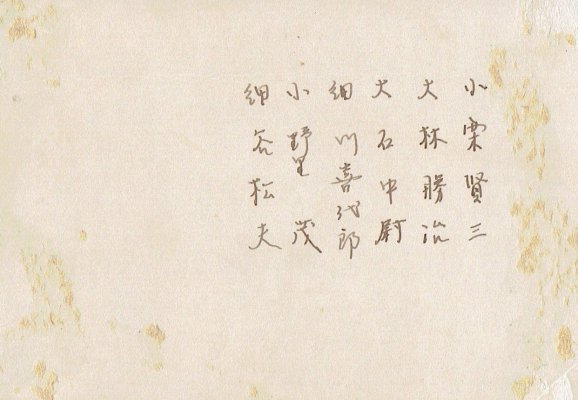 小栗賢三
大林勝治
大石中尉
細川喜代郎
小野里 茂
細谷松夫